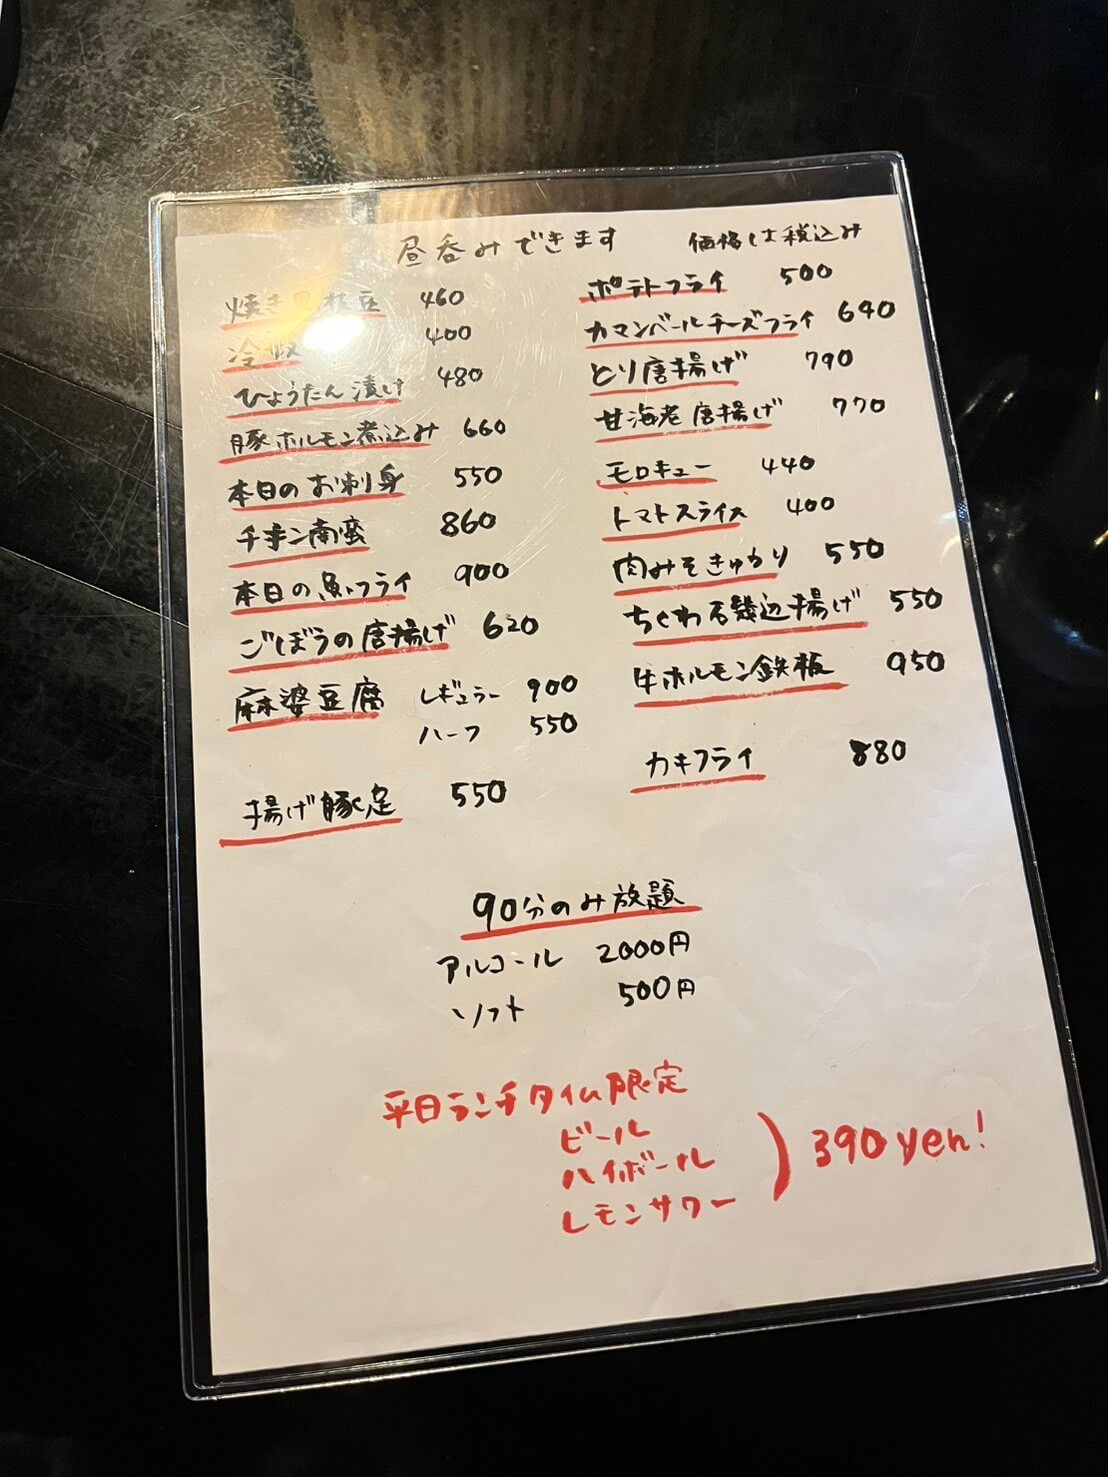 昼呑みできます 価格は税込み
焼き 枝豆 460
冷 奴 400
ひょうたん漬け 480
豚ホルモン煮込み 660
本日のお刺身 550
チキン南蛮 860
本日の魚フライ 900
ごぼうの唐揚げ 620
麻婆豆腐 レギュラー 900
ハーフ 550
揚げ豚足 550
ポテトフライ 500
カマンベールチーズフライ 640
とり唐揚げ 790
甘海老唐揚げ 770
モロキュー 440
トマトスライス 400
肉みそきゅうり 550
ちくわ石幾辺揚げ 550
牛ホルモン鉄板 950
カキフライ 880
90分のみ放題
アルコール 2000円
ソフト 500円
平日ランチタイム限定
ビール
ハイボール
レモンサワー
390yen!